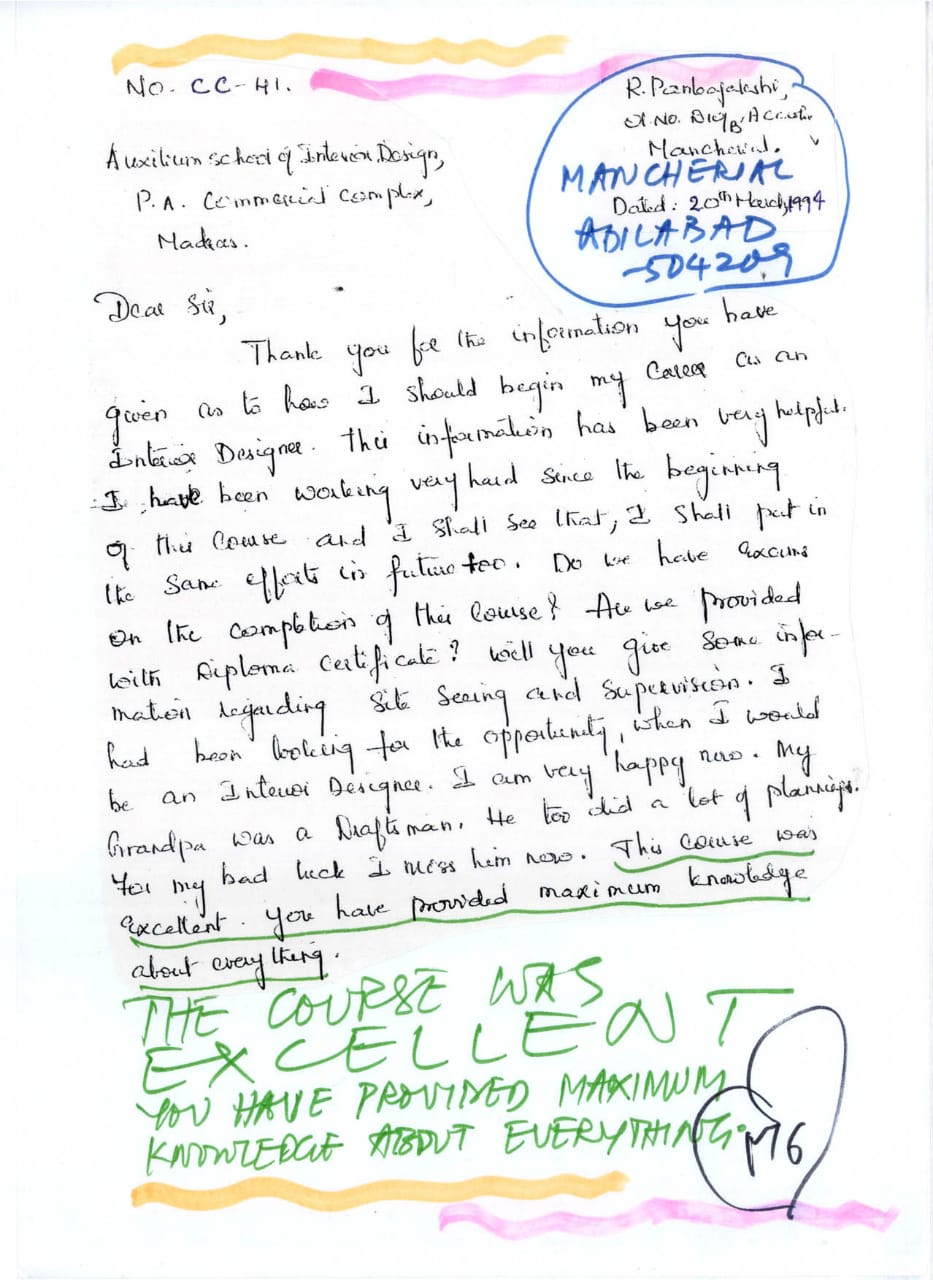 No. CC-41.
R. Pankajakshi,
Mancherial.
MANCHERIAL
Dated: 20th March, 1994
ADILABAD
-504209
Auxilium school of Interior Design,
P.A. Commercial Complex,
Madras.
Dear Sir,
Thank you for the information you have
given as to how I should begin my Career as an
Interior Designer. This information has been very helpful.
I have been working very hard since the beginning
of this Course and I shall see that, I shall put in
the same efforts in future too. Do we have Exams
on the completion of this Course? Are we provided
with Diploma Certificate? Will you give some infor-
mation regarding Site Seeing and Supervision. I
had been looking for the opportunity, when I would
be an Interior Designer. I am very happy now. My
Grandpa was a Draftsman. He too did a lot of plannings.
For my bad luck I miss him now. This Course was
Excellent. You have provided maximum knowledge
about everything.
THE COURSE WAS
EXCELLENT
YOU HAVE PROVIDED MAXIMUM
KNOWLEDGE ABOUT EVERYTHING.
M6